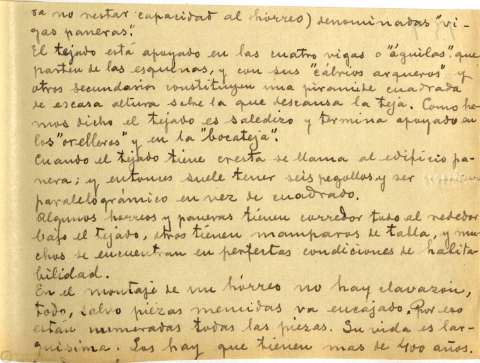 ra no restar capacidad al hórreo) denominadas "vi-
gas paneras".
El tejado está apoyado en las cuatro vigas o "águilas" que
parten de las esquinas, y con sus "cábrios arqueros" y
otros secundarios constituyen una piramide cuadrada
de escasa altura sobre la que descansa la teja. Como he-
mos dicho el tejado es saledizo y termina apoyado en
los "orelleros" y en la "bocateja".
Cuando el tejado tiene cresta se llama al edificio pa-
nera; y entonces suele tener seis pegollos y ser
paralelográmico en vez de cuadrado.
Algunos hórreos y paneras tienen corredor todo al rededor
bajo el tejado, otros tienen mamparos de tabla, y mu-
chos se encuentran en perfectas condiciones de habita-
bilidad.
En el montaje de un hórreo no hay clavazón,
todo, salvo piezas menudas va encajado. Por eso
están numeradas todas las piezas. Su vida es lar-
guísima. Los hay que tienen mas de 400 años.